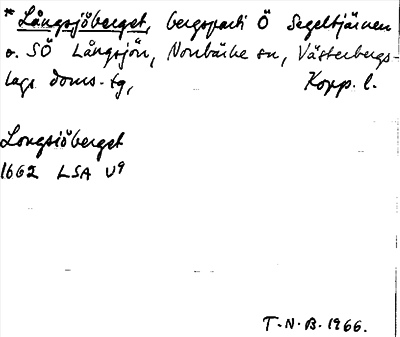 * Långsjöberget, bergsparti Ö Segeltjärnen
o. SÖ Långsjön, Norrbärke sn, Västerbergs-
lags doms. tg, Kopp. l.
Longsiöberget
1662 LSA U9
T.N.B. 1966.